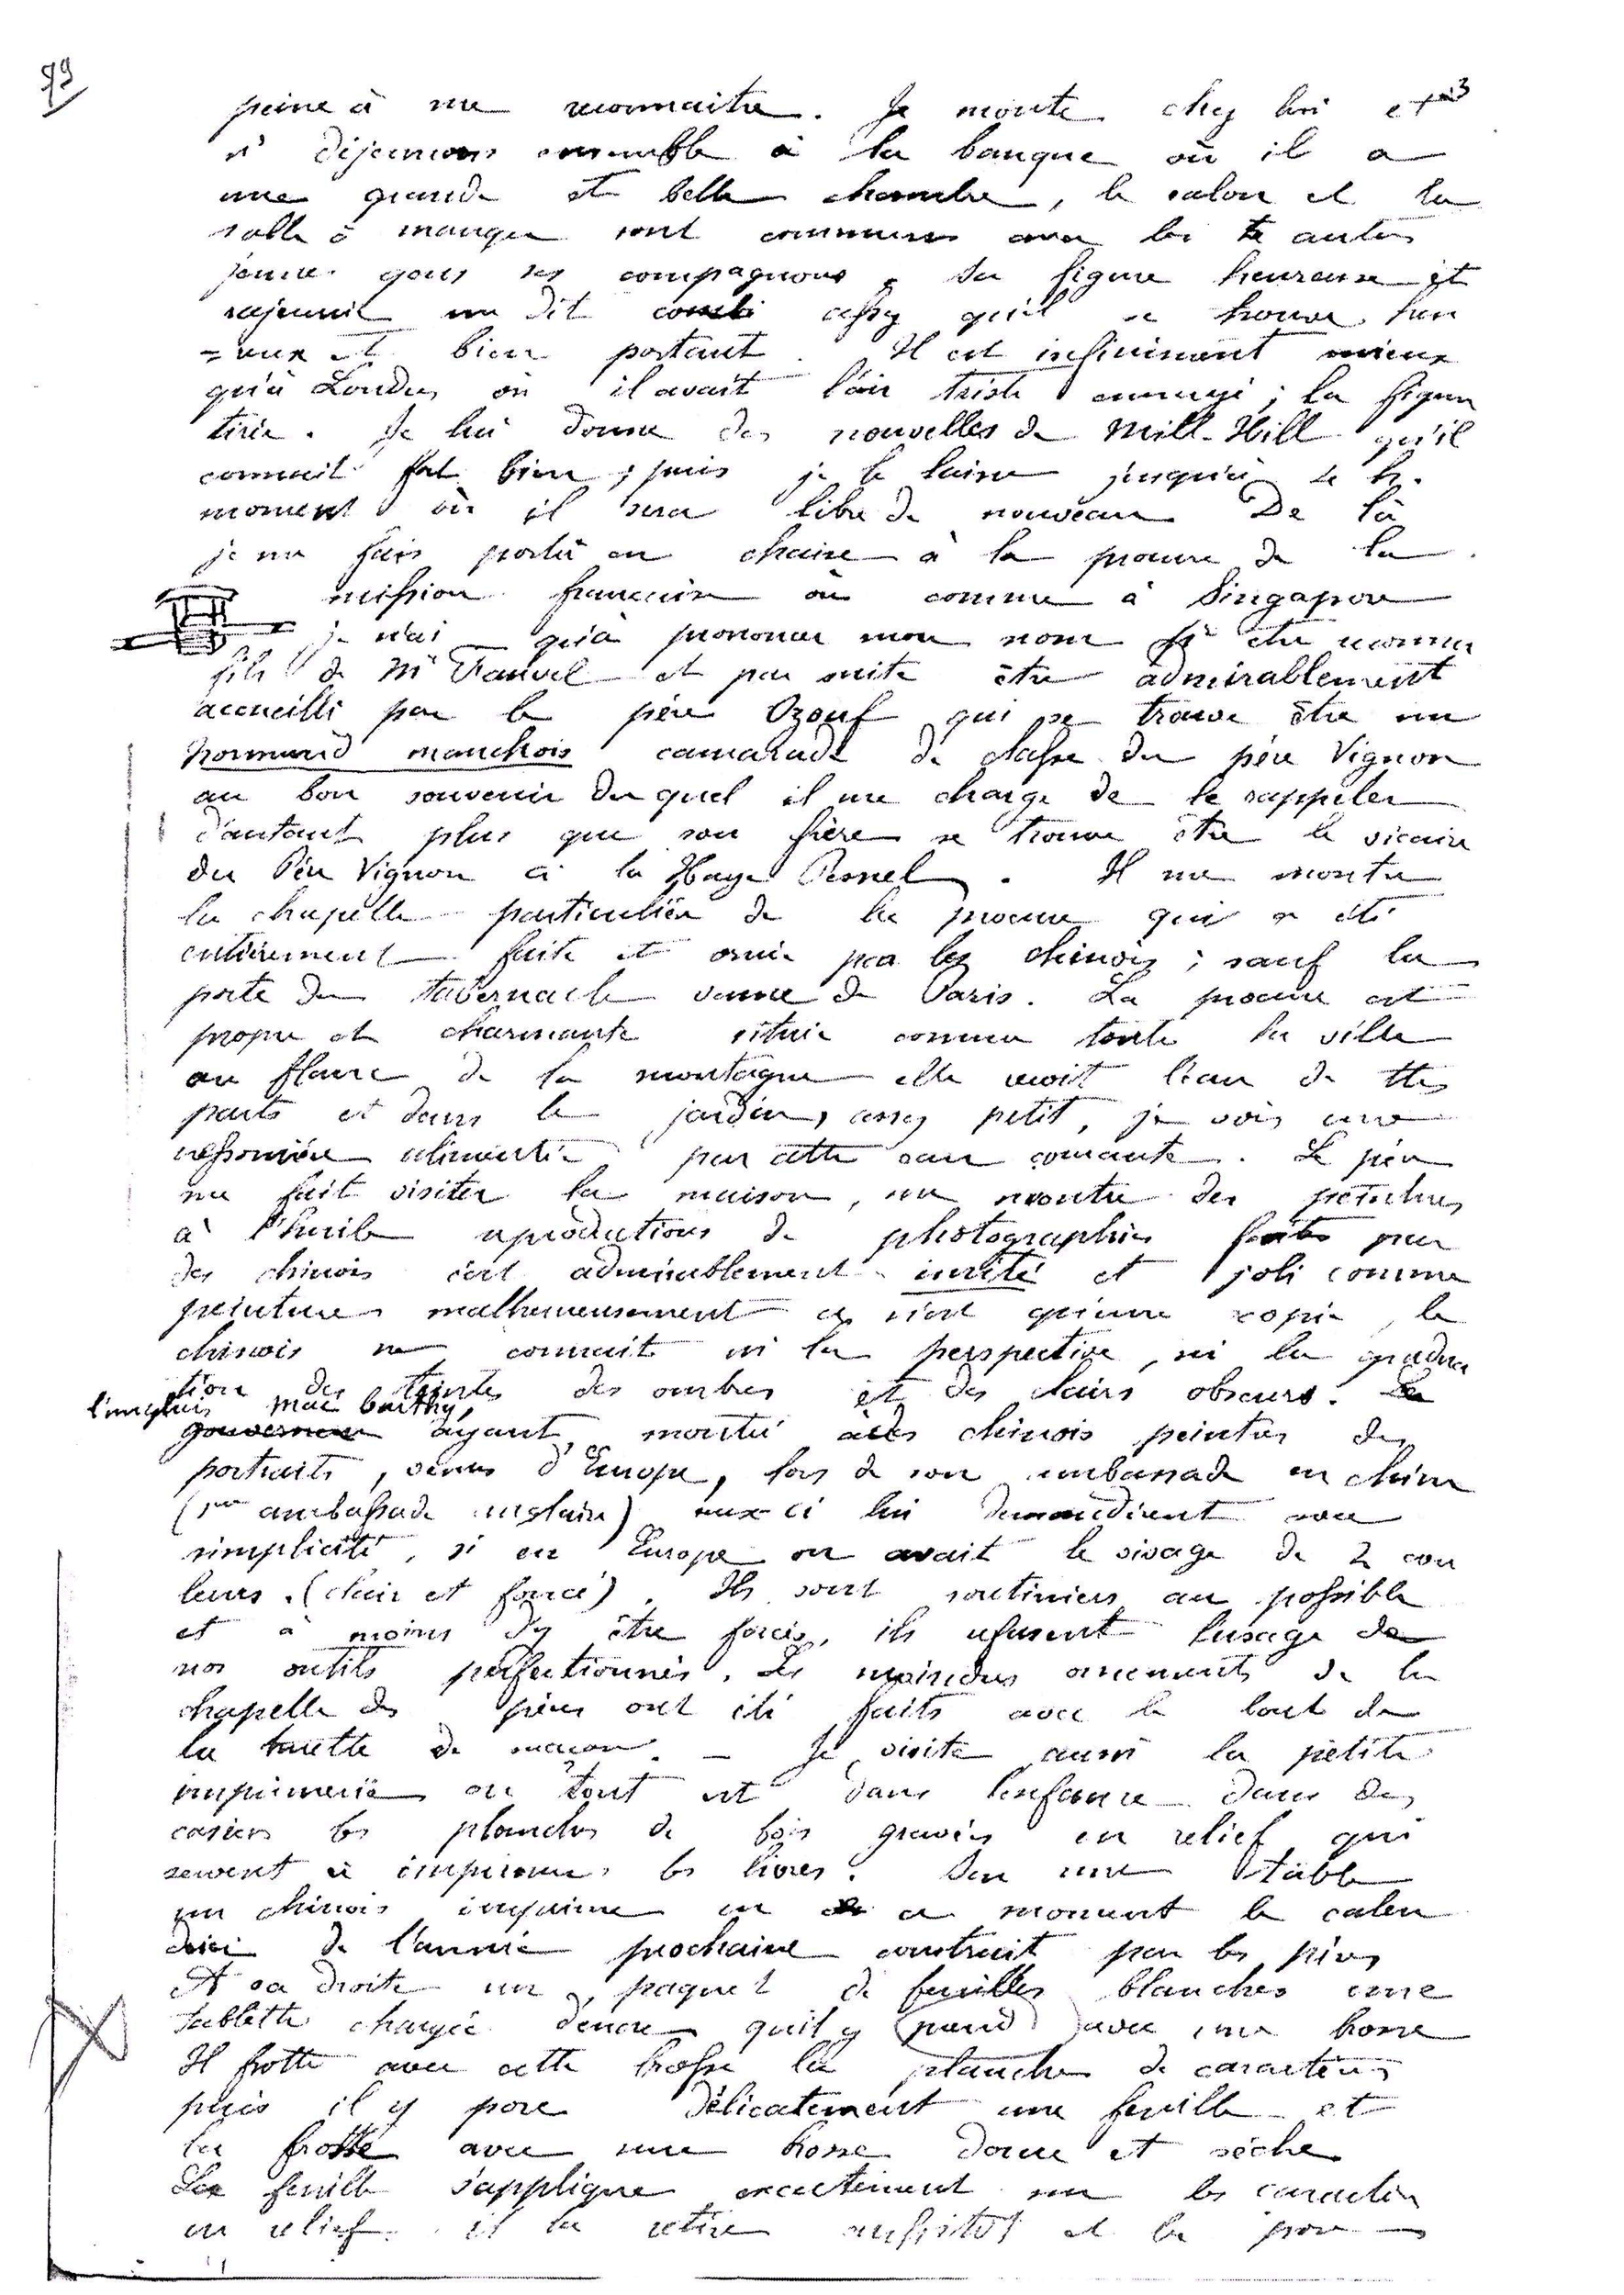 79
peine à me reconnaitre. Je monte chez lui et
ns déjeunons ensemble à la banque où il a
une grande et belle chambre, le salon et la
salle à manger sont communes avec les autres
jeunes gens ses compagnons. Sa figure heureuse et
rajeunie me dit assez qu'il se trouve heu
=reux et bien portant. Il est infiniment mieux
qu'à Londres où il avait l'air triste ennuyé ; la figure
tirée. Je lui donne des nouvelles de Mill-Hill qu'il
connait fort bien ; puis je le laisse jusqu'à
moment où il sera libre de nouveau De là
je me fais porter en chaise à la procure de la
mission francaise où comme à Singapore
je n'ai qu'à prononcer mon nom pr être reconnu
fils de Mr Fauvel et par suite être admirablement
accueilli par le père Ozouf qui se trouve être un
normand manchois camarade de classe du père Vignon
au bon souvenir du quel il me charge de le rappeler
d'autant plus que son frère se trouve être le vicaire
du Père Vignon à la Haye Pesnel. Il me montre
la chapelle particulière de la procure qui a été
entièrement faite et ornée par les chinois ; sauf la
porte du tabernacle venue de Paris. La procure est
propre et charmante située comme toute la ville
au flanc de la montagne elle reçoit l'eau de ttes
parts et dans le jardin, assez petit, je vois une
cressonière alimentée par cette eau courante. Le père
me fait visiter la maison, me montre des peintures
à l'huile reproductions de photographies faites par
des chinois c'est admirablement imité et joli comme
peinture malheureusement ce n'est qu'une copie, le
chinois ne connait ni la perspective, ni la gradua
tion des teintes des ombres et des clairs obscurs.
l'anglais Mac Carthy,
gouverneur ayant montré à des chinois peintres des
portraits, venus d'Europe, lors de son ambassade en chine
(1ere ambassade anglaise) ceux-ci lui demandèrent avec
simplicité, si en Europe on avait le visage de 2 cou
leurs. (clair et foncé). Ils sont routiniers au possible
et à moins d'y être forcés, ils refusent l'usage de
nos outils perfectionnés. Les moindres ornements de la
chapelle des pères ont été faits avec le bout de
la truelle de macon. — Je visite aussi la petite
imprimerie où tout est dans l'enfance dans des
casiers les planches de bois gravées en relief qui
servent à imprimer les livres. Sur une table
un chinois imprime en ce moment le calen
drier de l'année prochaine construit par les pères
A sa droite un paquet de feuilles blanches une
tablette chargée d'encre qu'il y prend avec une brosse
Il frotte avec cette brosse la planche de caractères
puis il y pose délicatement une feuille et
la frotte avec une brosse douce et sèche
La feuille s'applique exactement sur les caractères
en relief. il la retire aussitôt et la pose